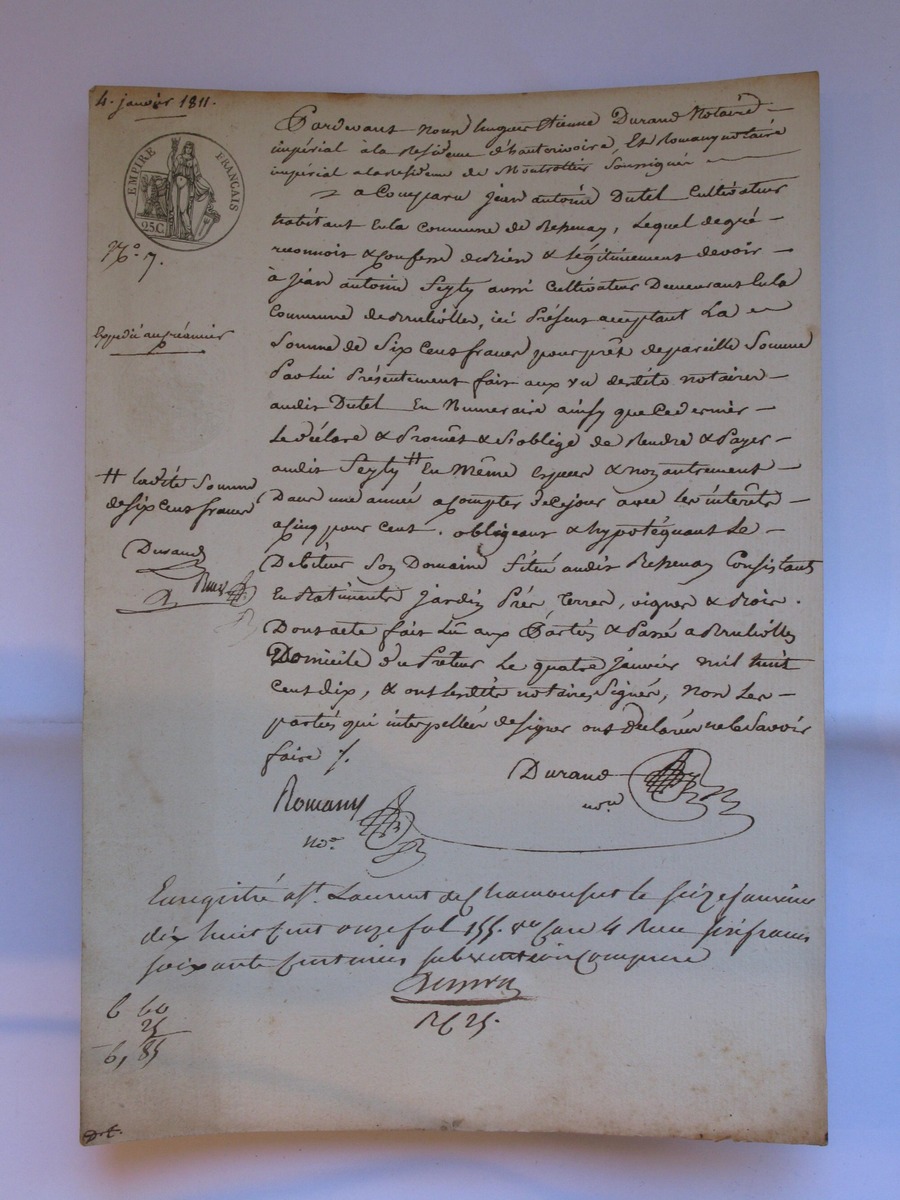 4. janvier 1811.
EMPIRE FRANÇAIS
25C
N.° 7.
Expédié au prémier
Pardevant nous hugues Etienne Durand Notaire
impérial à la Residence d'hauterivoire, Et Romany notaire
impérial a la residence de Montrottier Soussignés
a Comparu jean antoine Dutel Cultivateur
habitant En la Commune de , Lequel degré
reconnois & Confesse debvoir & légitimement devoir
à jean antoine Seyty aussi Cultivateur Demeurant En la
Commune de Brulliolles, ici Présent acceptant La
Somme de Six Cens francs pour prêt de pareille Somme
Par lui Présentement fait aux vu desdits notaires
audit Dutel En Numeraire ainsy que Ce dernier
Le déclare & Promêt & S'oblige de Rendre & Payer
audit Seyty # En Même Espece & non autrement
# ladite Somme
de six Cens francs
Durand
Dans une année a Compter de Ce jour avec Les intérêts
a Cinq pour Cent. obligeant & hypotéquant Le
Débiteur Son Domaine Situé audit Consistant
En Batiments jardin Prés, Terres, vignes & Bois.
Dont acte fait Lû aux Parties & Passé a Brulliolles
Domicile du Preteur Le quatre janvier mil huit
Cent dix, & ont lesdits notaires Signé, non Les
parties qui interpellées de signer ont Déclaré ne le Savoir
faire /.
Durand
no.re
Romany
no.e
Enregistré a St. Laurent de Chamousset le seize janvier
dix huit Cent onze fol 155. vo Case 4 Reçu six francs
soixante Centimes subvention Comprise
R C 25.
6 60
25
6, 85